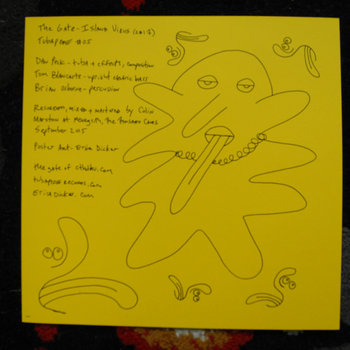 The Gate - Island Virus (2017)
Tubapede #05
Dan Peck - tuba + effects, composition
Tom Blancarte - upright electric bass
Brian Osborne - percussion
Recorded, mixed + mastered by Colin
Marston at Menegroth, The Thousand Caves
September 2015
Poster Art - Etha Dicker
thegateofcthulhu.com
tubapederecords.com
Dicker.com